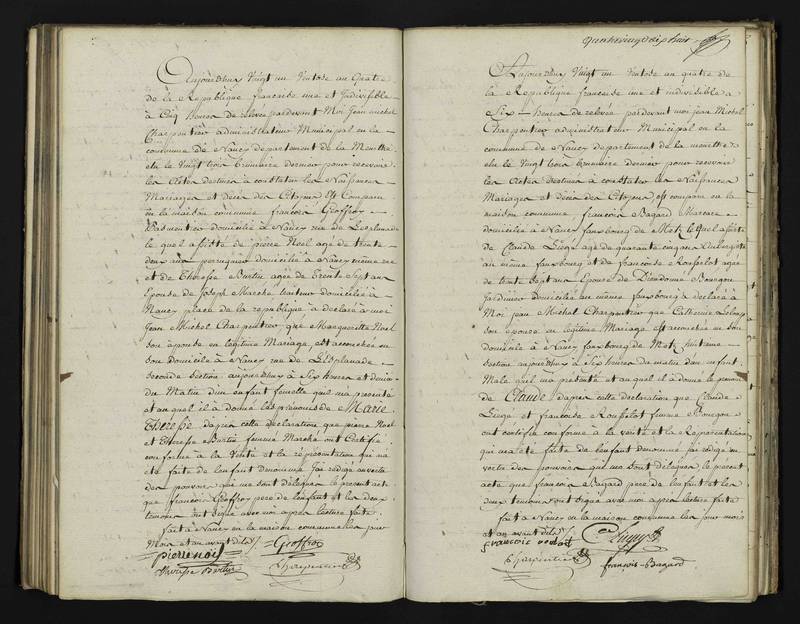 Aujourdhuy Vingt un Ventose an Quatre
de la Republique francaise une et Indivisible
à Cinq heures de relevée pardevant Moi Jean Michel
Charpentier administrateur Municipal en la
commune de Nancy departement de la Meurthe
elu le Vingt trois brumaire dernier pour recevoir
les Actes destinés à constater les Naissances
Mariages et décès des Citoyens Est Comparu
en la maison commune francois Geoffroy
domicilié à Nancy rue de Lesplanade
le quel assisté de pierre Noel agé de trente
deux ans perruquier domicilié à Nancy même rue
et de Therese Burtié agée de Trente Sept ans
Epouse de Joseph Marché traiteur domiciliée à
Nancy place de la republique à déclaré à moi
Jean Michel Charpentier que Margueritte Noel
son épouse en legitime Mariage, est accouchée en
son domicile à Nancy rue de Lesplanade
seconde section aujourdhuy à Six heures et demie
du Matin d'un enfant femelle quil ma presenté
et au quel il à donné les prenoms de Marie
Therese, dapres cette declaration que pierre Noel
et Therese Burtié femme Marché ont Certifié
conforme à la Verité et la représentation qui ma
été faite de lenfant denommé Jai redigé en vertu
des pouvoirs qui me sont délégués le present acte
que francois Geoffroy pere de lenfant et les deux
temoins ont signé avec moi apres lecture faite
fait à Nancy en la maison commune les jour
Mois et an avant dits
pierre noel Geoffroy
Therese Burtié Charpentier
Quatrevingt dix huit
Aujourdhuy Vingt un Ventose an quatre de
la Republique francaise une et indivisible à
Six heures de relevée pardevant moi jean Michel
Charpentier administrateur Municipal en la
commune de Nancy departement de la meurthe
elu le Vingt trois brumaire dernier pour recevoir
les Actes destinés à constater les Naissances
Mariages et décès des Citoyens, est comparu en la
maison commune, francois Bagard
domicilié à Nancy fauxbourg de Metz lequel assisté
de Claude Liegé agé de quarante cinq ans
au meme fauxbourg et de francoise Rouselot agée
de trente Sept ans Epouse de Dieudonné Bourgon
Jardinier domiciliée au même fauxbourg à déclaré à
Moi jean Michel Charpentier que Catherine
son épouse en legitime Mariage est accouchée en son
domicile à Nancy fauxbourg de Metz huitieme
section aujourdhuy à Six heures du matin d'un enfant
Male quil ma presenté et au quel il à donné le prenom
de Claude, dapres cette declaration que Claude
Liegé et francoise Rouselot femme Bourgon
ont certifié conforme à la verité et la Representation
qui ma été faite de lenfant denommé jai redigé en
vertu des pouvoirs qui me sont délégués le present
acte que francois Bagard pere de lenfant et les
deux temoins ont signé avec moi apres lecture faite
fait à Nancy en la maison commune les jour mois
et an avant dits
francoise
Charpentier françois Bagard